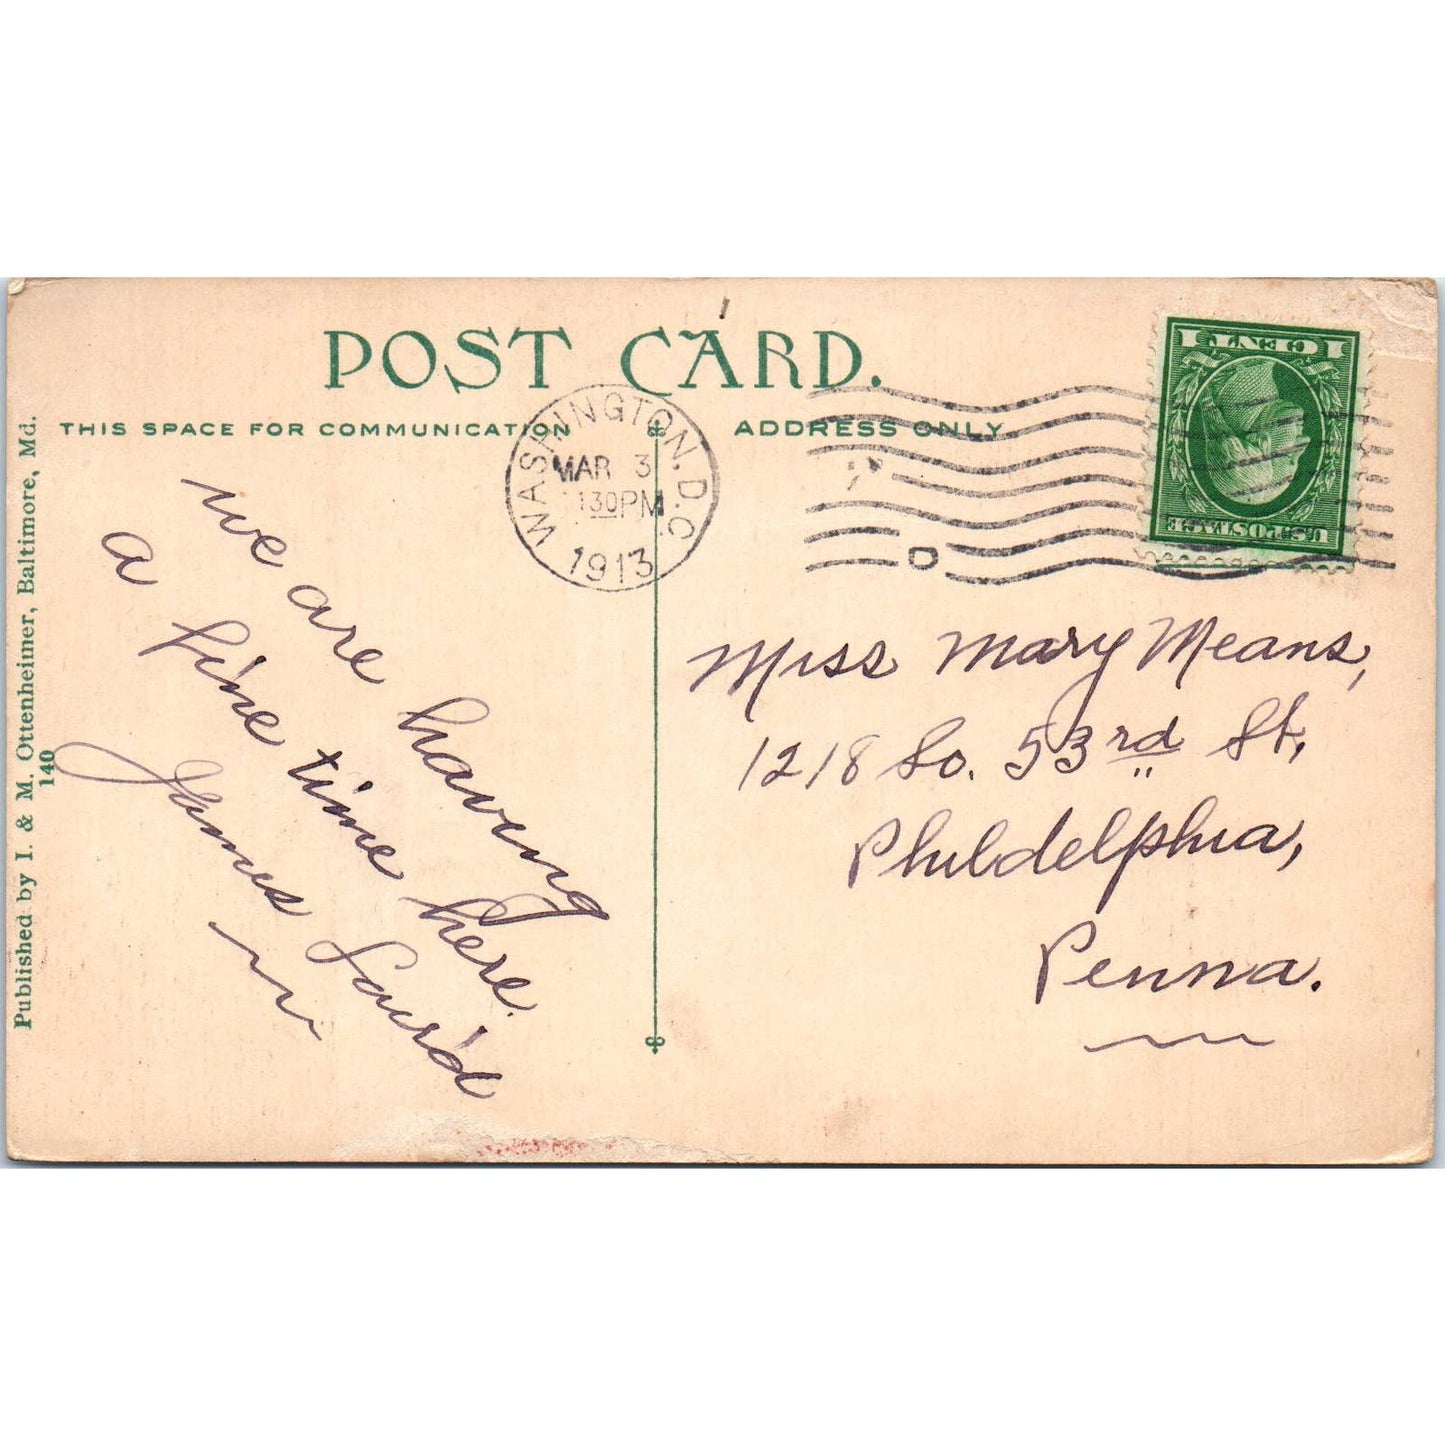 POST CARD.
THIS SPACE FOR COMMUNICATION
ADDRESS ONLY
WASHINGTON. D.C.
MAR 3
130 PM
1913
D
1 CENT 1
U.S. POSTAGE
Published by I. & M. Ottenheimer, Baltimore, Md.
140
we are having
a fine time here.
James Laird
Miss Mary Means,
1218 So. 53rd St,
Phildelphia,
Penna.